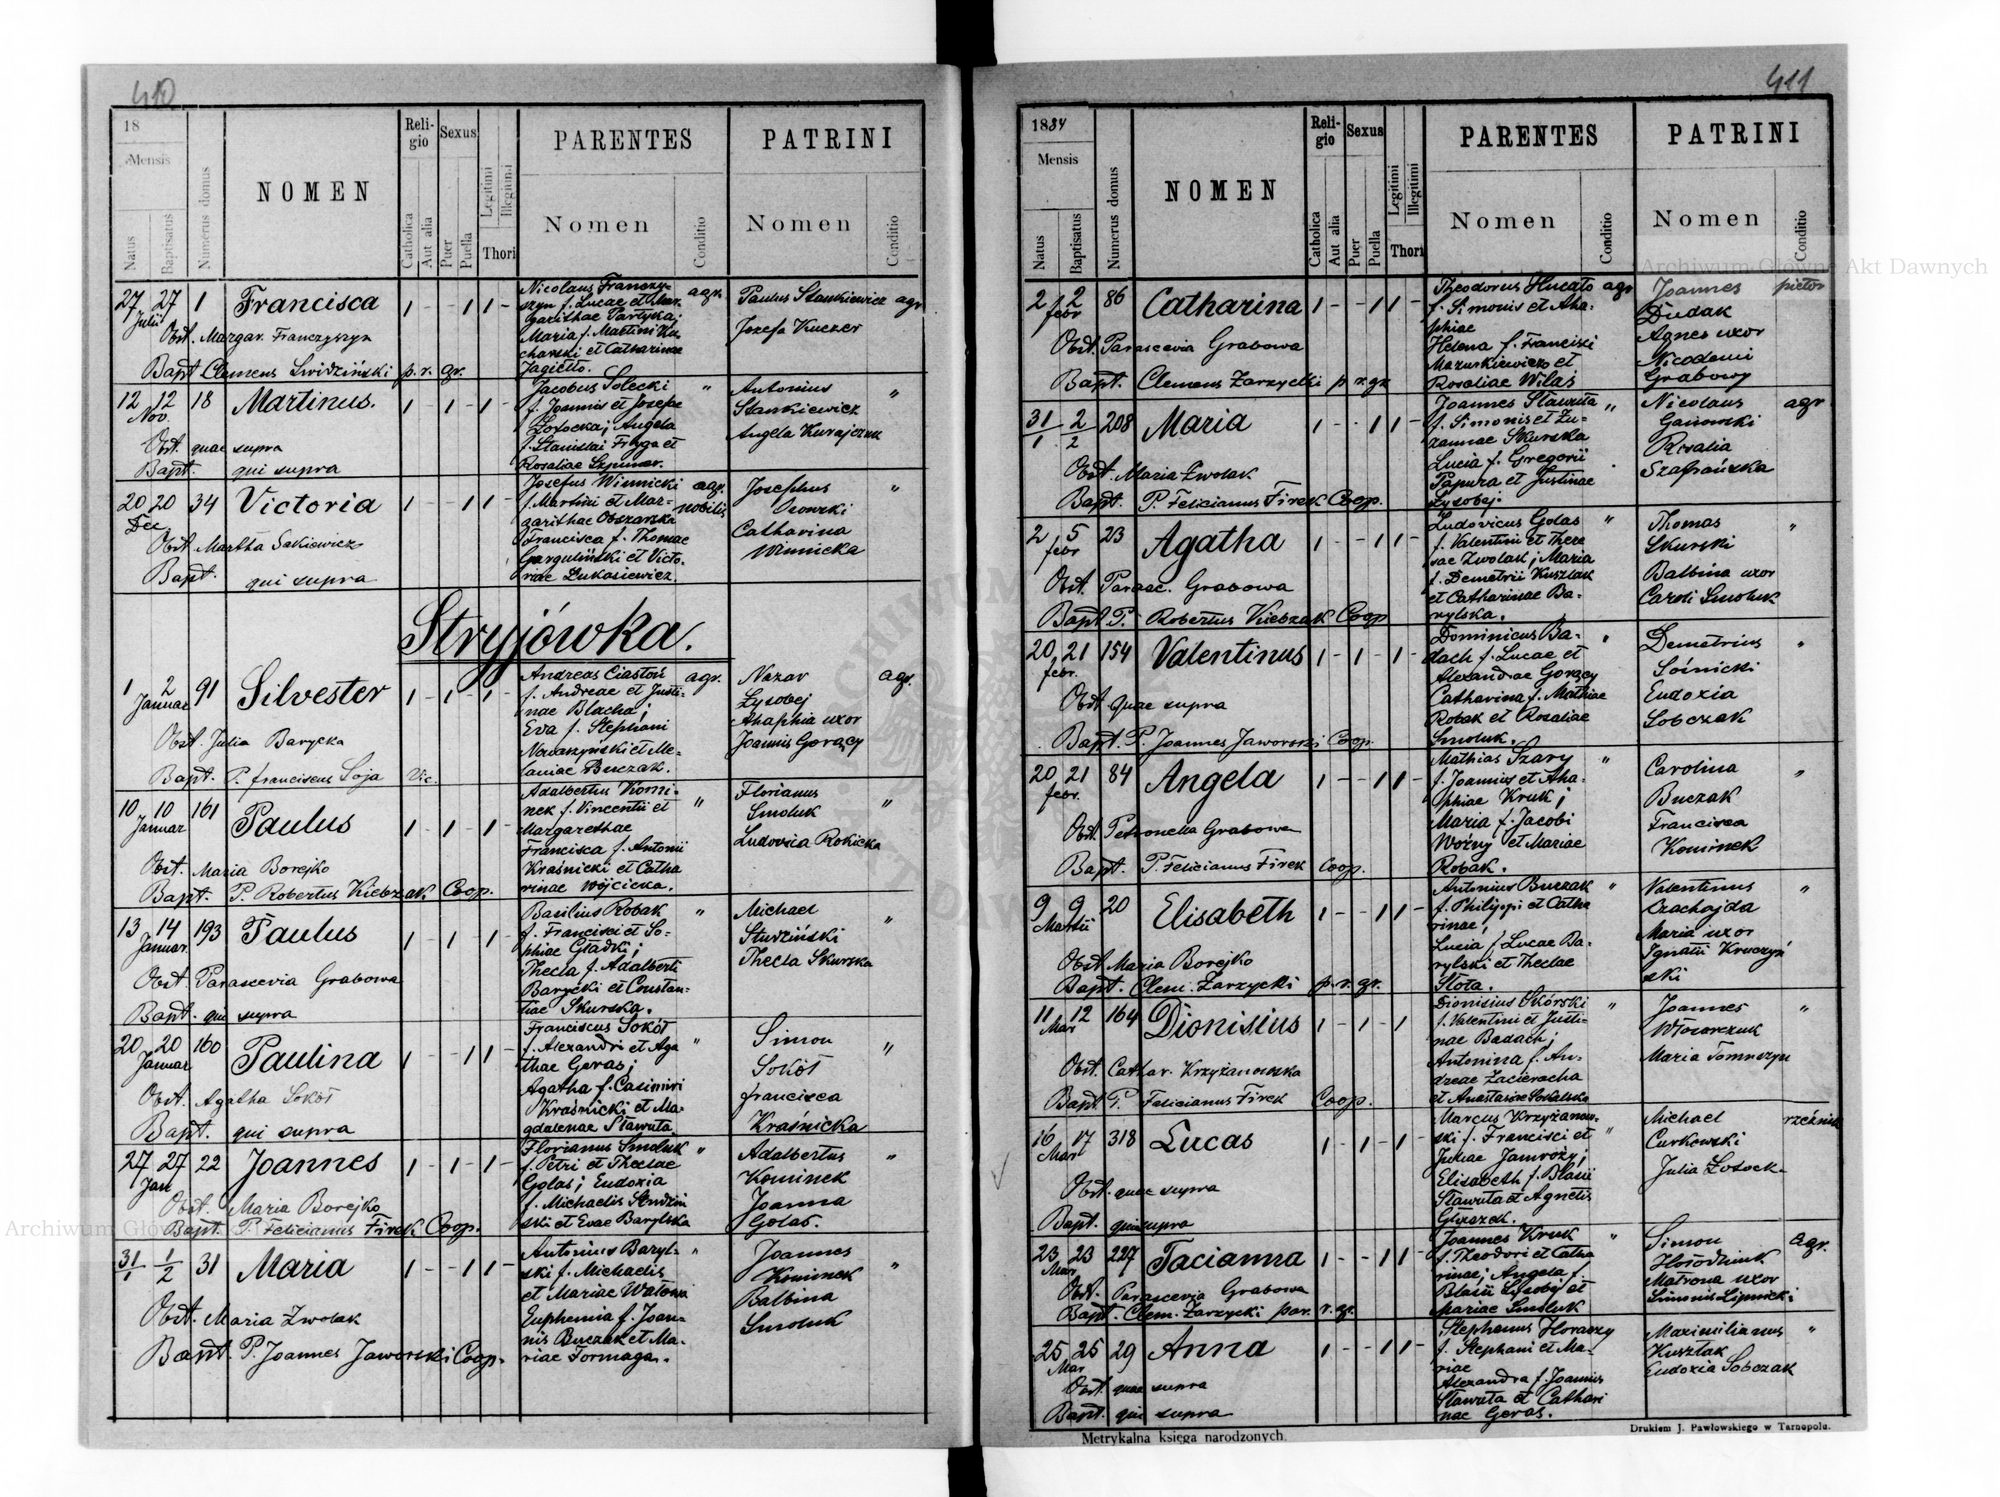 410
18
Mensis
Natus
Baptisatus
Numerus domus
NOMEN
Reli-
gio
Catholica
Aut alia
Sexus
Puer
Puella
Legitimi
Illegitimi
Thori
PARENTES
Nomen
Conditio
PATRINI
Nomen
Conditio
27 27 1 Francisca 1 - - 1 1 -
Julii
Obst. Margar. Franczyszyn
Bapt Clemens Swidziński p. r. gr.
Nicolaus Franczy-
szyn f. Lucae et Mar-
garithae Partyka;
Maria f. Martini Ku-
charski et Catharinae
Jagiełło.
agr.
Paulus Stankiewicz agr
Josefa Kuczer
12 12 18 Martinus. 1 - 1 - 1 -
Nov.
Obst. quae supra
Bapt. qui supra
Jacobus Solecki "
f. Joannis et Josefae
Łotocka; Angela
f. Stanislai Fryga et
Rosaliae Szpunar.
Antonius "
Stankiewicz
Angela Kurajczuk
20 20 34 Victoria 1 - - 1 1 -
Dec
Obst Martha Sakiewicz
Bapt. qui supra
Josefus Winnicki agr.
f. Martini et Mar- nobilis
garithae Obszarska
Francisca f. Thomae
Garguliński et Victo-
riae Łukasiewicz.
Josephus "
Osowski
Catharina
Winnicka
Stryjówka.
1 2 91 Silvester 1 - 1 - 1 -
Januar
Obst. Julia Barycka
Bapt. P. franciscus Soja Vic.
Andreas Ciastoń agr.
f. Andreae et Justi-
nae Blacha;
Eva f. Stephani
Nawaszyński et Me-
laniae Buczak.
Nazar agr.
Łysobej
Ahaphia uxor
Joannis Gorący
10 10 161 Paulus 1 - 1 - 1 -
Januar
Obst. Maria Borejko
Bapt. P. Robertus Kiebzak Coop.
Adalbertus Komi-
nek f. Vincentii et "
Margarethae
Francisca f. Antonii
Kraśnicki et Catha
rinae Wójcicka.
Florianus
Smoluk "
Ludovica Rokicka
13 14 193 Paulus 1 - 1 - 1 -
Januar.
Obst. Parascevia Grabowa
Bapt. qui supra
Basilius Robak "
f. Francisci et So-
phiae Gładki;
Thecla f. Adalberti
Barycki et Constan-
tiae Skurska.
Michael "
Studziński
Thecla Skurska
20 20 160 Paulina 1 - - 1 1 -
Januar
Obst. Agatha Sokół
Bapt. qui supra
Franciscus Sokół
f. Alexandri et Aga "
thae Geras;
Agatha f. Casimiri
Kraśnicki et Ma-
gdalenae Sławuta.
Simon "
Sokół
francisca
Kraśnicka
27 27 22 Joannes 1 - 1 - 1 -
Jan
Obst. Maria Borejko
Bapt. P. Felicianus Firek Coop.
Florianus Smoluk "
f. Petri et Theclae
Golas; Eudoxia
f. Michaelis Studziń
ski et Evae Barylska
Adalbertus "
Kominek
Joanna
Golas.
31/1 1/2 31 Maria 1 - - 1 1 -
Obst. Maria Zwolak
Bapt. P. Joannes Jaworski Coop.
Antonius Baryl- "
ski f. Michaelis
et Mariae Watowa
Euphemia f. Joan-
nis Buczak et Ma-
riae Formaga.
Joannes "
Kominek
Balbina
Smoluk
411
1884
Mensis
Natus
Baptisatus
Numerus domus
NOMEN
Reli-
gio
Catholica
Aut alia
Sexus
Puer
Puella
Legitimi
Illegitimi
Thori
PARENTES
Nomen
Conditio
PATRINI
Nomen
Conditio
2 2 86 Catharina 1 - - 1 1 -
febr
Obst. Parascevia Grabowa
Bapt. Clemens Zarzycki p r. gr
Theodorus Hucało agr
f. Simonis et Aha-
phiae
Helena f. Franciski
Mazurkiewicz et
Rosaliae Wilas
Joannes pictor
Dudak
Agnes uxor
Nicodemi
Grabowy
31/1 2/2 208 Maria 1 - - 1 1 -
Obst. Maria Zwolak
Bapt. P. Felicianus Firek Coop.
Joannes Sławuta "
f. Simonis et Zu-
zannae Skurska
Lucia f. Gregorii
Papuza et Justinae
Łysobej.
Nicolaus agr
Gaiowski
Rosalia
Szafrańska
2 5 23 Agatha 1 - - 1 1 -
febr
Obst. Parasc. Grabowa
Bapt P. Robertus Kiebzak Coop
Ludovicus Golas "
f. Valentini et There
sae Zwolak; Maria
f. Demetrii Kusztak
et Catharinae Ba-
rylska.
Thomas "
Skurski
Balbina uxor
Caroli Smoluk
20 21 154 Valentinus 1 - 1 - 1 -
febr.
Obst. quae supra
Bapt. P. Joannes Jaworski Coop.
Dominicus Ba- "
dach f. Lucae et
Alexandrae Gorący
Catharina f. Mathiae
Robak et Rosaliae
Smoluk.
Demetrius "
Sośnicki
Eudoxia
Sobczak
20 21 84 Angela 1 - - 1 1 -
febr.
Obst. Petronella Grabowa
Bapt. P. Felicianus Firek Coop.
Mathias Szary "
f. Joannis et Aha-
phiae Kruk;
Maria f. Jacobi
Woźny et Mariae
Robak.
Carolina "
Buczak
Francisca
Kominek
9 9 20 Elisabeth 1 - - 1 1 -
Martii
Obst Maria Borejko
Bapt. Clem. Zarzycki p. r. gr.
Antonius Buczak "
f. Philippi et Catha
rinae;
Lucia f. Lucae Ba-
rylski et Theclae
Słota.
Valentinus "
Czachajda
Maria uxor
Ignatii Kruczyń
ski
11 12 164 Dionisius 1 - 1 - 1
Mar
Obst. Cathar. Krzyżanowska
Bapt P. Felicianus Firek Coop.
Dionisius Skórski "
f. Valentini et Justi-
nae Badach;
Antonina f. An-
dreae Zacieracha
et Anastasiae Sokalska
Joannes "
Włosarczuk
Maria Tomuszyn
16 17 318 Lucas 1 - 1 - 1 -
Mar
Obst. quae supra
Bapt. qui supra
Marcus Krzyżanow-
ski f. Francisci et "
Juliae Jamroży;
Elisabeth f. Blasii
Sławuta et Agnetis
Głuszek.
Michael rzeźnik
Curkowski
Julia Łotock-
23 23 227 Tacianna 1 - - 1 1 -
Mar
Obst. Parascevia Grabowa
Bapt. Clem. Zarzycki par. r. gr.
Joannes Kruk "
f. Theodori et Catha
rinae; Angela f.
Blasii Łysobej et
Mariae Smoluk
Simon agr.
Horodziuk
Matrona uxor
Simonis Lipnicki
25 25 29 Anna 1 - - 1 1 -
Mar
Obst. quae supra
Bapt. qui supra
Stephanus Horaczy
f. Stephani et Ma-
riae
Alexandra f. Joannis
Sławuta et Cathari
nae Geras.
Maximilianus "
Kusztak
Eudoxia Sobczak
Metrykalna księga narodzonych.
Drukiem J. Pawłowskiego w Tarnopolu.
Archiwum Główne Akt Dawnych